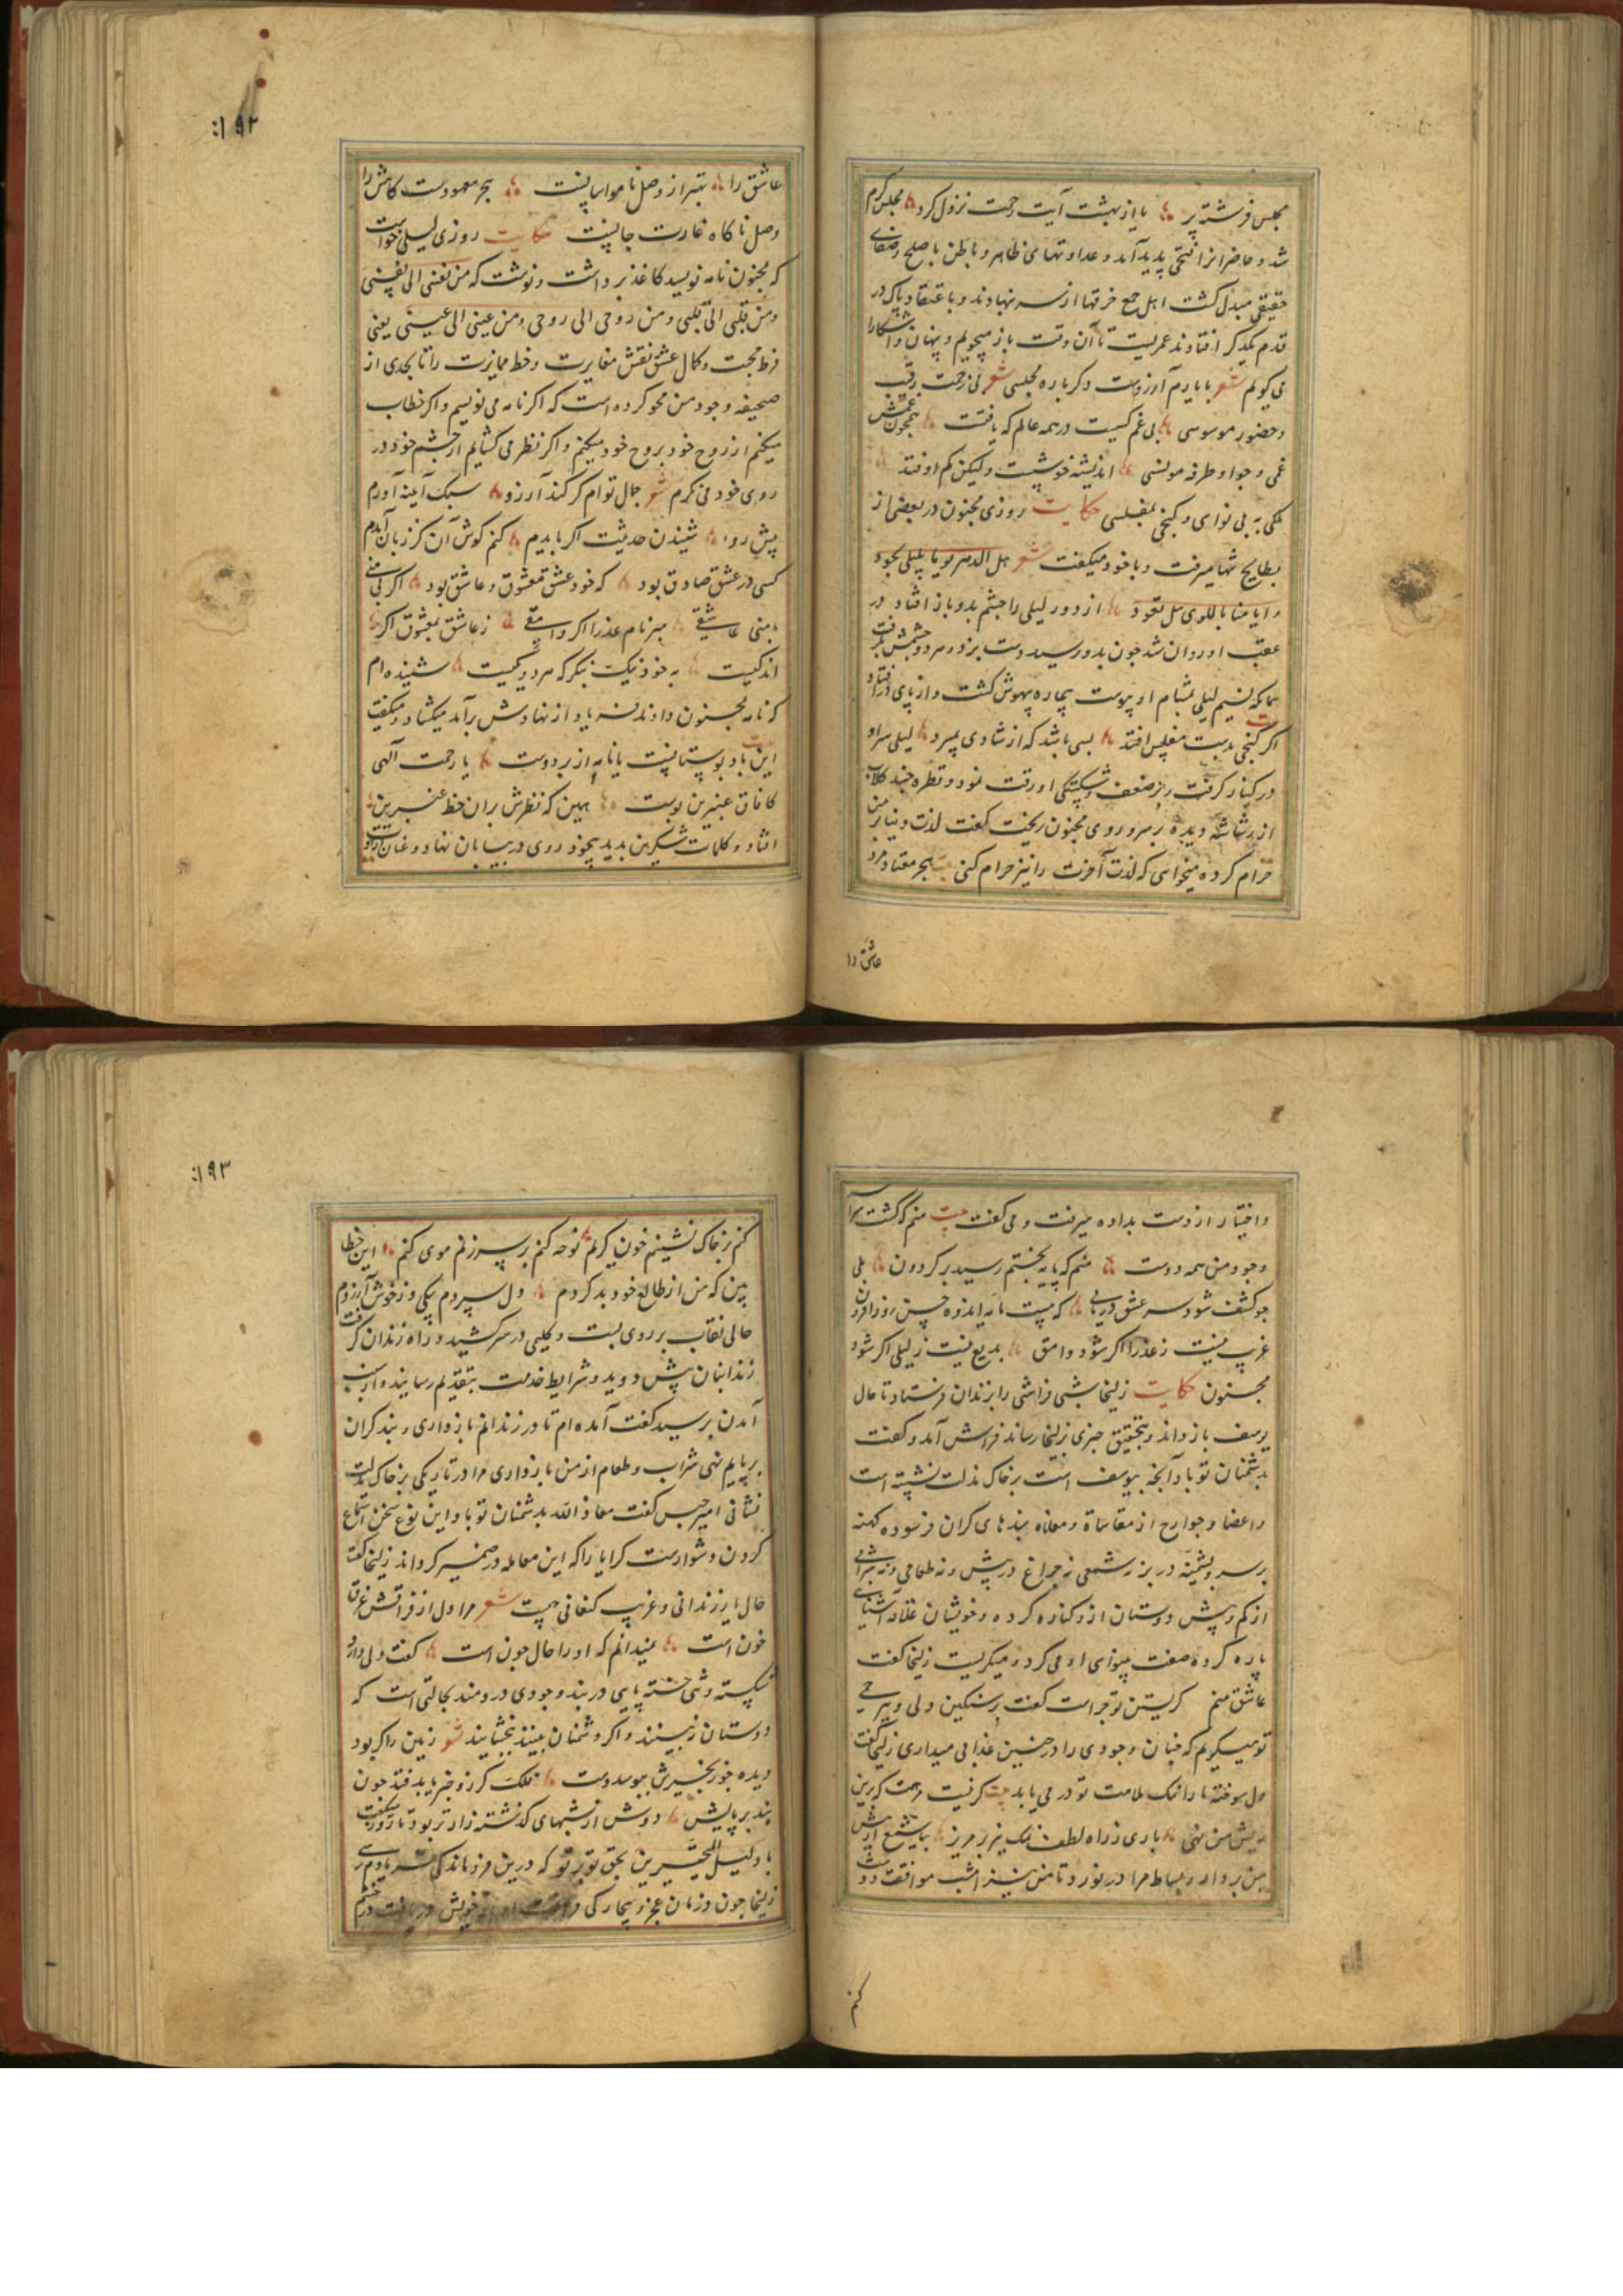 مجلس فرشته پر یا از بهشت آیت رحمت نزول کرد مجلس گرم
شد و حاضرانرا فتحی پدید آمد و عداوتهای ظاهر و باطن با صلح و صفای
حقیقی مبدل گشت اهل جمع خرقها از سر بنهادند و باعتقاد پاک در
قدم یکدیگر افتادند عمریست تا آن وقت باز میجویم و پنهان و آشکارا
می گویم شعر با یارم آرزوست دگر باره مجلسی شعر بی زحمت رقیب
و حضور موسوسی بی غم کسیست در همه عالم که یافتت همچون غمش
غمی و جو او طرفه مونسی اندیشه خوشیست ولیکن کم اوفتد
ملکی به بی نوای و گنجی بمفلسی حکایت روزی مجنون در بعضی از
بطایح تنها میرفت و با خود میگفت شعر هل الدهر یویا بلیلی یجود
و ایامنا باللوی هل تعود از دور لیلی را چشم بدو باز افتاد در
عقب او روان شد جون بدو رسید دست بزد و هر دو چشمش بگرفت
همانکه نسیم لیلی بمشام او پیوست بیچاره بیهوش گشت و از پای در افتاد
اگر گنجی بدست مفلس افتد بسی باشد که از شادی بمیرد لیلی سر او
در کنار گرفت و بر ضعف و شکستگی او رقت نمود و قطره چند گلاب
از رشاشه دیده بر سر و روی مجنون ریخت گفت لذت دنیا بر من
حرام کرده میخواهی که لذت آخرت را نیز حرام کنی بیت هجر معتاد مرد
عاشق را
۱۹۲
عاشق را بهتر از وصل نا مواسا نیست هجر معهودست کاهش را
وصل ناگاه غارت جانیست حکایت روزی لیلی خواست
که بمجنون نامه نویسد کاغذ برداشت و نوشت که من نفسی الی نفسی
و من قلبی الی قلبی و من روحی الی روحی و من عینی الی عینی یعنی
فرط محبت و کمال عشق نقش مغایرت و خط ممایزت را تا بحدی از
صحیفه وجود من محو کرده است که اگر نامه می نویسم و اگر خطاب
میکنم از روح خود بروح خود میکنم و اگر نظر می گشایم از چشم خود در
روی خود می نگرم شعر جمال توام گر کند آرزو سبک آینه آورم
پیش رو شنیدن حدیثت اگر بایدم کنم گوش آن کز زبان آیدم
کسی در عشق صادق بود که خود عشق و معشوق و عاشق بود اگر بی منی
با منی عاشقی مبر نام عذرا اگر وامقی ز عاشق بمعشوق اگر
اندکیست به خود نیک بنگر که هر دو یکیست شنیده ام
که نامه بمجنون دادند فریاد از نهادش برآمد میگشاد و میگفت
بیت این باد بوستانیست یا نامه از بر دوست یا رحمت آلهی
کافاق عنبرین بوست همین که نظرش بران خط عنبرین
افتاد و کلمات شکرین بدید بیخود روی در بیابان نهاد و عنان ارادت
و اختیار از دست بداده میرفت و می گفت بیت منم که گشت سرا
وجود من همه دوست منم که پایه بختم رسید بر گردون بلی
جو کشف شود سر عشق دریابی که چیست مایه اندوه حسن روز افزون
غریب نیست ز عذرا اگر شود وامق بدیع نیست ز لیلی اگر شود
مجنون حکایت زلیخا شبی فراشی را بزندان فرستاد تا حال
یوسف باز داند و بتحقیق خبری بزلیخا رساند فراش آمد و گفت
بدشمنان تو باد آنچه بیوسف است بر خاک مذلت نشسته است
و اعضا و جوارح از مقاساة و معاناه بندهای گران فرسوده کهنه
بر سر و پشمینه در بر نه شمعی نه جراغ در پیش و نه طعامی و نه شرابی
از کم و پیش دوستان ازو کناره کرده و خویشان علاقه آشنایی
پاره کرده صفت بینوای او می کرد و میگریست زلیخا گفت
عاشق منم گریستن تو جراست گفت بر سنگین دلی و بیرحمی
تو میگریم که جنان وجودی را در جنین عذابی میداری زلیخا گفت
دل سوخته ما را نمک ملامت تو در می باید بیت گر نیست مرهمت که برین
ریش من نهی باری ز راه لطف نمک نیز بر مریز
من بردار و بساط مرا در نورد تا من نیز امشب موافقت دوست
کنم
۱۹۳
کنم بر خاک نشینم خون گریم نوحه کنم بر سر زنم موی کنم این خطا
بین که من از طالع خود بد کردم دل سپردم بیکی وز خوش آزردم
حالی نقاب بر روی بست و گلیمی در سر کشید و راه زندان گرفت
زندانبان پیش دوید و شرایط خدمت بتقدیم رسانید و از سبب
آمدن پرسید گفت آمده ام تا در زندانم بازداری و بند گران
بر پایم نهی شراب و طعام از من بازداری مرا در تاریکی بر خاک مذلت
نشانی امیر حبس گفت معاذ الله بدشمنان تو باد این نوع سخن استماع
کردن دشوارست کرا یارا که این معامله در ضمیر گرداند زلیخا گفت
حال یار زندانی و غریب کنعانی چیست شعر مرا دل از فراقش غرق
خون است نمیدانم که او را حال جون است گفت دلی دارد
شکسته و تنی خسته پایی در بند وجودی دردمند بحالتی است که
دوستان نبینند و اگر دشمنان بینند ببخشایند شعر زمین را گر بود
دیده جو زنجیرش ببوسد دست فلک گر زو خبر یابد فتد جون
بند بر پایش دوش از شبهای گذشته زارتر بود تا روز میگفت
یا دلیل المتحیرین بحق تو بر تو که درین فروماندگی فریادم رس
زلیخا جون درمان عجز و بیچارگی خویش